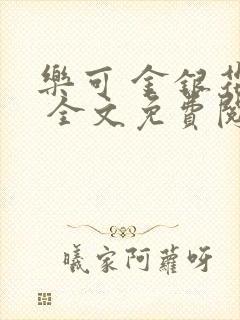 樂可 金銀花
全文免費閱
曦家阿蘿呀